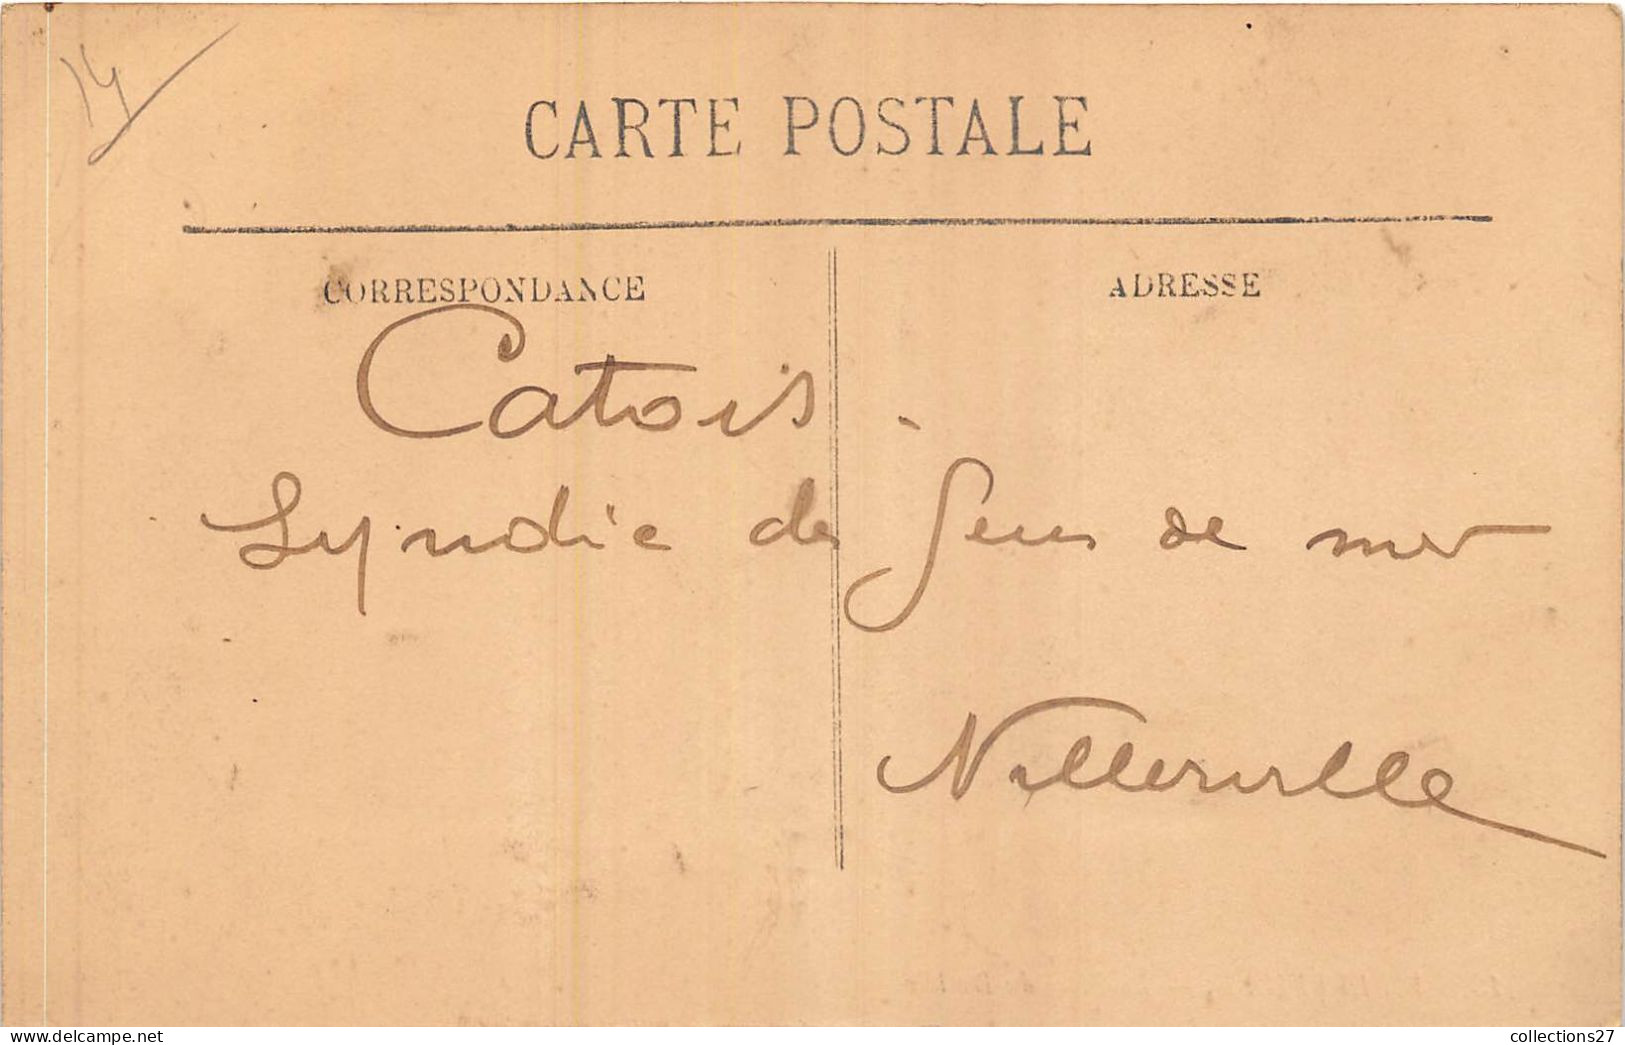 14
CARTE POSTALE
CORRESPONDANCE
ADRESSE
Catois.
Syndic des Gens de mer
Villerville
collections27